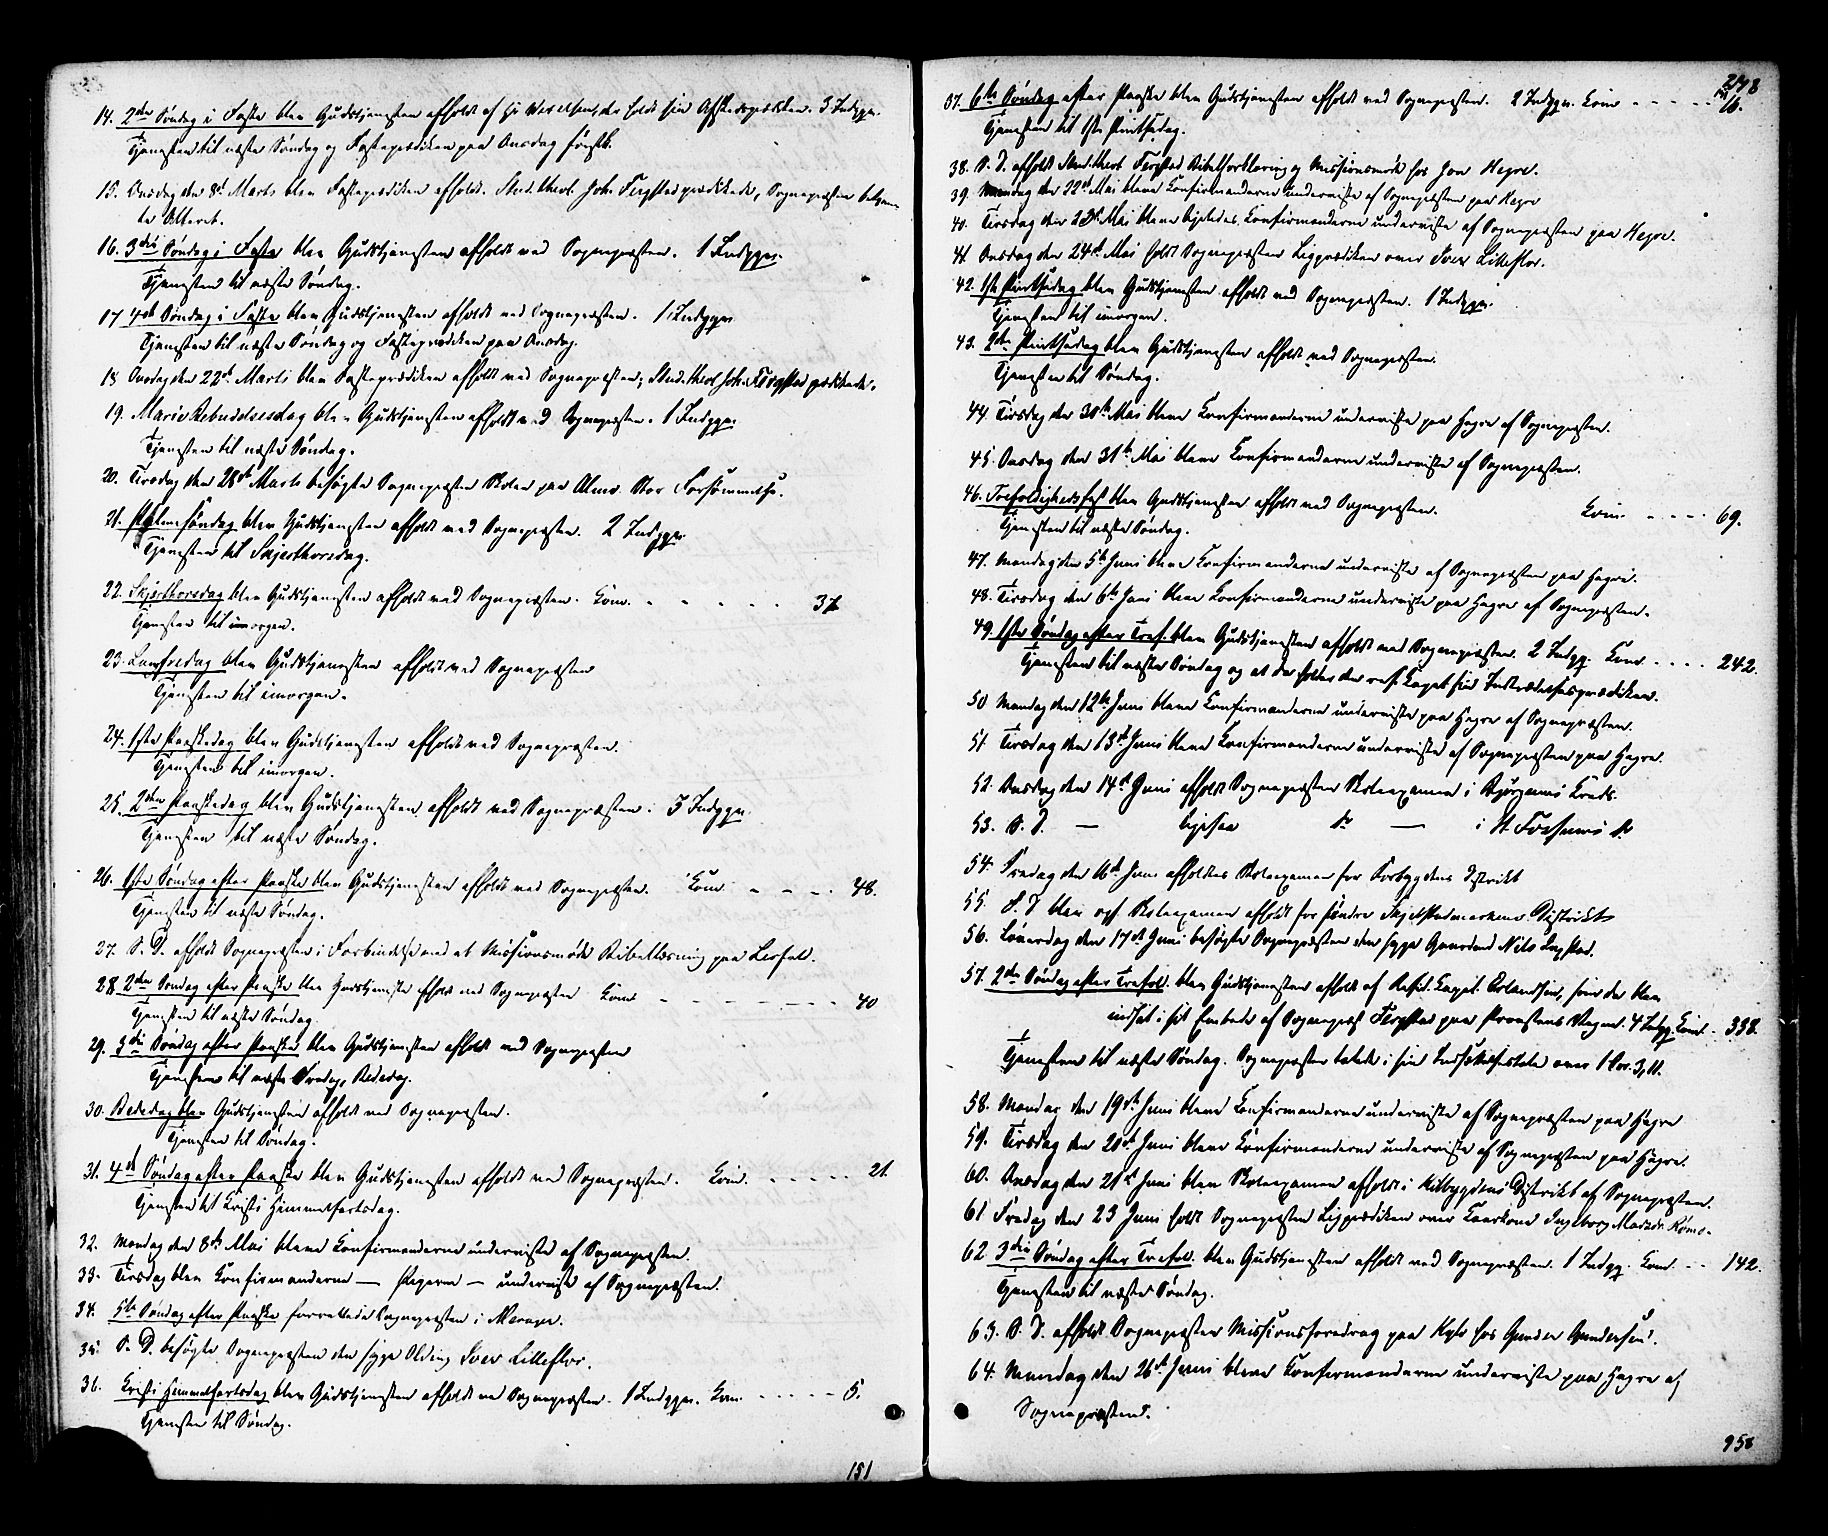 14. 2den Søndag i Faste blev Gudstjenesten afholdt af Hr Wexelsen, der holdt sin Afskedsprædiken. 3 Indggn.
Tjenesten til næste Søndag og Fasteprædiken paa Onsdag
15. Onsdag den 8de Marts blev Fasteprædiken afholdt. Stud. theol. Joh. Fergstad prædikede, Sognepræsten betjente Alteret.
16. 3die Søndag i Faste blev Gudstjenesten afholdt ved Sognepræsten. 1 Indggn.
Tjenesten til næste Søndag.
17 4de Søndag i Faste blev Gudstjenesten afholdt ved Sognepræsten. 1 Indggn
Tjenesten til næste Søndag og Fasteprædiken paa Onsdag.
18 Onsdag den 22de Marts blev Fasteprædiken afholdt ved Sognepræsten; Stud. theol Joh. Fergstad prædikede.
19. Mariæ Bebudelsesdag blev Gudstjenesten afholdt ved Sognepræsten. 1 Indggn.
Tjenesten til næste Søndag.
20. Tirsdag den 28de Marts besøgte Sognepræsten Skolen paa Almo. Stor Forsømmelse.
21. Palmesøndag blev Gudstjenesten afholdt ved Sognepræsten. 2 Indggn
Tjenesten til Skjærthorsdag.
22. Skjærthorsdag blev Gudstjenesten afholdt ved Sognepræsten. Com. - - - - - 37
Tjenesten til imorgen.
23. Langfredag blev Gudstjenesten afholdt ved Sognepræsten
Tjenesten til imorgen.
24. 1ste Paaskedag blev Gudstjenesten afholdt ved Sognepræsten.
Tjenesten til imorgen.
25. 2den Paaskedag blev Gudstjenesten afholdt ved Sognepræsten. 3 Indggn.
Tjenesten til næste Søndag.
26. 1ste Søndag efter Paaske blev Gudstjenesten afholdt ved Sognepræsten. Com. - - - - 48.
Tjenesten til næste Søndag.
27. S. D. afholdt Sognepræsten i Forbindelse med et Missionsmøde Bibellæsning paa
28. 2den Søndag efter Paaske blev Gudstjeneste afholdt ved Sognepræsten Com - - - - - 40
Tjenesten til næste Søndag.
29. 3die Søndag efter Paaske blev Gudstjenesten afholdt ved Sognepræsten
Tjenesten til næste Fredag, Bededag.
30. Bededag blev Gudstjenesten afholdt ved Sognepræsten.
Tjenesten til Søndag.
31. 4de Søndag efter Paaske blev Gudstjenesten afholdt ved Sognepræsten. Com. - - - - - 21.
Tjenesten til Kristi Himmelfartsdag.
32. Mandag den 8de Mai bleve Konfirmanderne underviste af Sognepræsten.
33. Tirsdag blev Konfirmanderne — Pigerne — underviste af Sognepræsten.
34. 5te Søndag efter Paaske forrettede Sognepræsten i Meraker.
35. S. D. besøgte Sognepræsten den syge Olding Iver Lilleflor.
36. Kristi Himmelfartsdag blev Gudstjenesten afholdt ved Sognepræsten. 1 Indggn. Com. - - - - - 5.
Tjenesten til Søndag.
151
248
37. 6te Søndag efter Paaske blev Gudstjenesten afholdt ved Sognepræsten. 2 Indggn. Com - - - - - 16.
Tjenesten til 1ste Pintsedag.
38. S. D. afholdt Stud. theol. Fergstad Bibelforklaring og Missionsmøde hos Jon Hegre.
39. Mandag den 22de Mai bleve Konfirmanderne underviste af Sognepræsten paa Hegre
40. Tirsdag den 23de Mai bleve ligeledes Konfirmanderne underviste af Sognepræsten paa Hegre.
41 Onsdag den 24de Mai holdt Sognepræsten Ligprædiken over Iver Lilleflor.
42. 1ste Pintsedag blev Gudstjenesten afholdt ved Sognepræsten. 1 Indggn.
Tjenesten til imorgen.
43. 2den Pintsedag blev Gudstjenesten afholdt ved Sognepræsten.
Tjenesten til Søndag.
44. Tirsdag den 30te Mai bleve Konfirmanderne underviste paa Hegre af Sognepræsten.
45. Onsdag den 31te Mai bleve Konfirmanderne underviste af Sognepræsten.
46. Trefoldighedsfest blev Gudstjenesten afholdt ved Sognepræsten. Com. - - - - 69.
Tjenesten til næste Søndag.
47. Mandag den 5te Juni bleve Konfirmanderne underviste af Sognepræsten paa Hegre.
48. Tirsdag den 6te Juni bleve Konfirmanderne underviste paa Hegre af Sognepræsten.
49. 1ste Søndag efter Tref. blev Gudstjenesten afholdt ved Sognepræsten. 2 Indgg. Com. - - - - 242.
Tjenesten til næste Søndag og at da holder den res. Capel. sin Indtrædelsesprædiken.
50 Mandag den 12te Juni bleve Konfirmanderne underviste paa Hegre af Sognepræsten.
51 Tirsdag den 13de Juni bleve Konfirmanderne underviste af Sognepræsten paa Hegre.
52. Onsdag den 14de Juni afholdt Sognepræsten Skoleexamen i Bjørgums Kreds.
53. S. D. — ligesaa do — i Ø. Forsmos do
54. Fredag den 16de Juni afholdtes Skoleexamen for Forbygdens Distrikt
55. S. D blev ogs. Skoleexamen afholdt for søndre Skjelstadmarkens Distrikt
56. Løverdag den 17de Juni besøgte Sognepræsten den syge Gaardmd Nils
57. 2den Søndag efter Trefol. blev Gudstjenesten afholdt af Resid. Capel. Erlandsen, som da blev
indsat i sit Embede af Sognepræst Fergstad paa Provstens Vegne. 4 Indgg. Com. - 338.
Tjenesten til næste Søndag. Sognepræsten talede i sin Indsættelsestale over 1 Cor. 3, 11.
58. Mandag den 19de Juni bleve Konfirmanderne underviste af Sognepræsten paa Hegre
59. Tirsdag den 20de Juni bleve Konfirmanderne underviste af Sognepræsten paa Hegre.
60. Onsdag den 21de Juni blev Skoleexamen afholdt i Kilbygdens Distrikt af Sognepræsten.
61 Fredag den 23 Juni holdt Sognepræsten Ligprædiken over Kaarkone Ingeborg Madsdr. Rømo.
62 3die Søndag efter Trefol. blev Gudstjenesten afholdt ved Sognepræsten. 1 Indgg. Com. - - 142.
Tjenesten til næste Søndag.
63. S. D. afholdt Sognepræsten Missionsforedrag paa hos Gunder Gundersen.
64. Mandag den 26de Juni bleve Konfirmanderne underviste paa Hegre af
Sognepræsten.
958